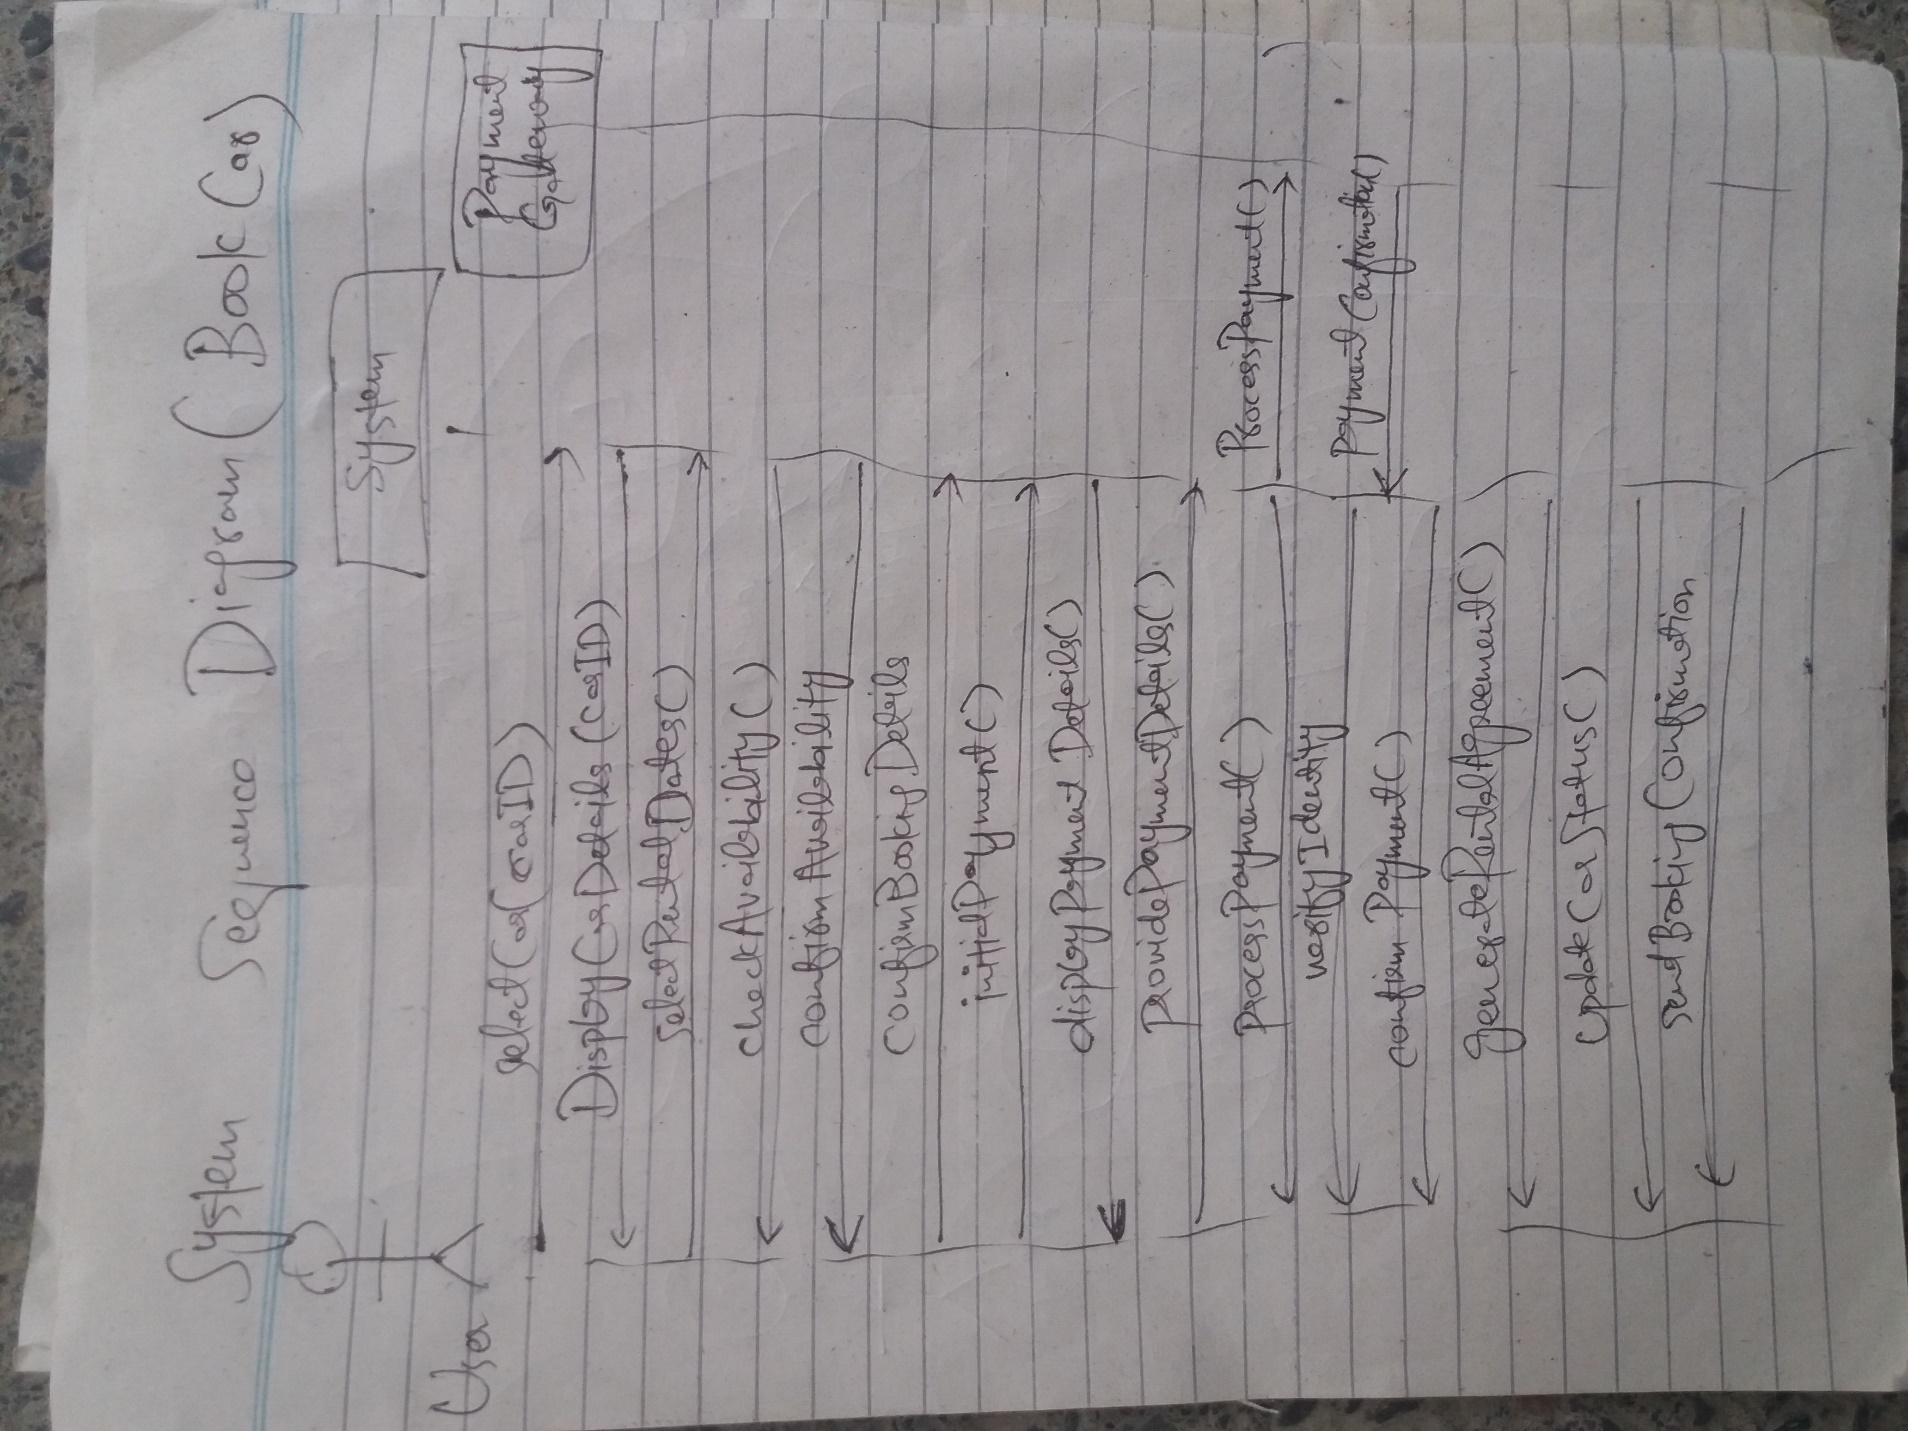 System Sequence Diagram (Book Car)
System
Payment
Gateway
User
select Car(carID)
Display CarDetails (carID)
select Rental Dates()
check Availability()
confirm Availability
Confirm Booking Details
initial Payment()
display Payment Details()
provide Payment Details()
process Payment()
Process Payment()
verify Identity
Payment Confirmation()
confirm Payment()
generate Rental Agreement()
update Car Status()
send Booking Confirmation